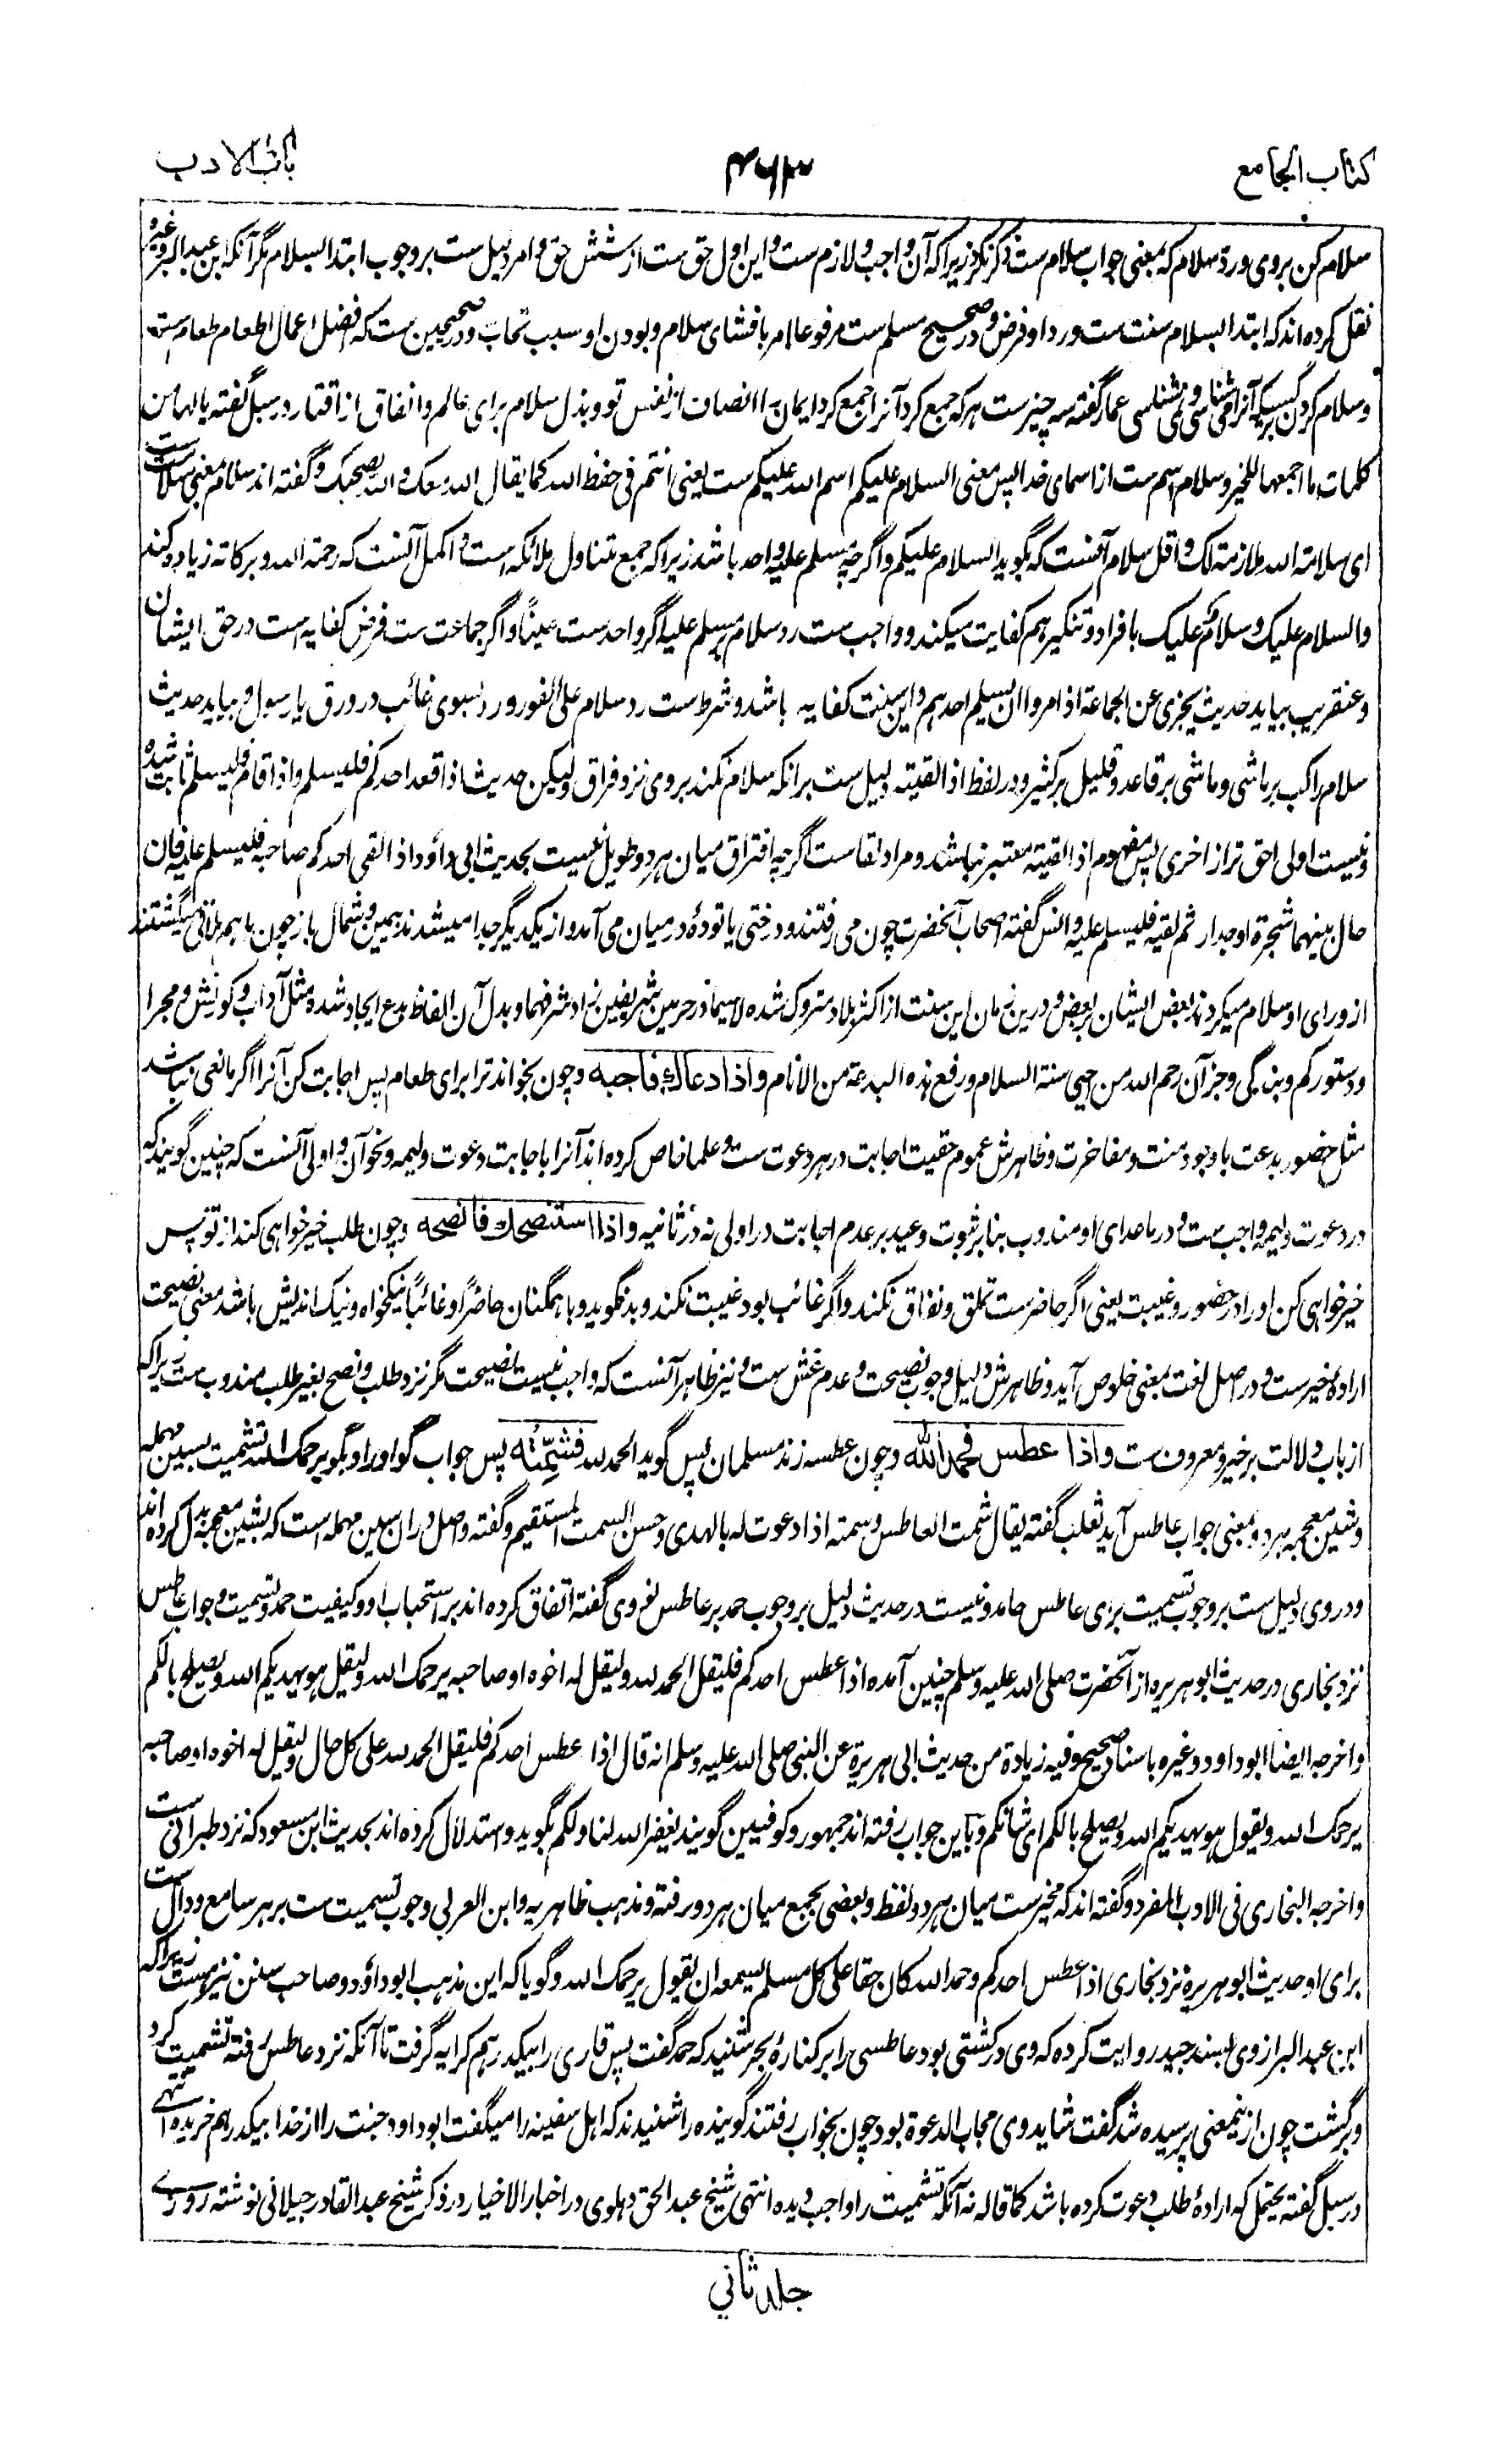 کتاب الجامع
۴۶۳
باب الادب
سلام کن بروی ورد سلام که بمعنی جواب سلام ست ذکر نکرد زیراکه آن واجب و لازم ست و این اول حق ست از شش حق و امر دلیل ست بر وجوب ابتدا بسلام مگر آنکه ابن عبدالبر وغیره
نقل کرده اند که ابتدا بسلام سنت ست ورد او فرض و در صحیح مسلم ست مرفوعا امر بافشای سلام و بودن او سبب تحاب و در صحیحین ست که افضل اعمال اطعام طعام ست
وسلام کردن بر کسیکه آنرا می شناسی و نمی شناسی عمار گفته سه چیز ست هرکه جمع کرد آنرا جمع کرد ایمان را انصاف از نفس تو و بذل سلام برای عالم و انفاق از اقتار در سبل گفته یا لها من
کلمات ما اجمعها للخیر و سلام اسم ست از اسمای خدا پس معنی السلام علیکم اسم الله علیکم ست یعنی انتم فی حفظ الله کما یقال الله معک والله یصحبک و گفته اند سلام بمعنی سلامت ست
ای سلامة الله ملازمة لک و اقل سلام آنست که بگوید السلام علیکم و اگرچه مسلم علیه واحد باشد زیراکه جمع متناول ملائکه است و اکمل آنست که رحمة الله و برکاته زیاده کند
والسلام علیک و سلام علیک بافراد و تنکیر هم کفایت میکند و واجب ست رد سلام بر مسلم علیه اگر واحد ست عینا و اگر جماعت ست فرض کفایه است در حق ایشان
و عنقریب بیاید حدیث یجزی عن الجماعة اذا مروا ان یسلم احدهم و این سنت کفایه باشد و شرط ست رد سلام علی الفور ورد بسوی غائب در ورق یا رسول و بیاید حدیث
سلام راکب بر ماشی و ماشی بر قاعد و قلیل بر کثیر و در لفظ اذا لقیته دلیل ست برانکه سلام نکند بروی نزد فراق ولیکن حدیث اذا قعد احدکم فلیسلم و اذا قام فلیسلم ثابت شده
و نیست اولی احق تر از اخری پس مفهوم اذا لقیته معتبر نباشد و مراد لقاست اگرچه افتراق میان هر دو طویل نیست بحدیث ابی داؤد اذا لقی احدکم صاحبه فلیسلم علیه فان
حال بینهما شجرة او جدار ثم لقیه فلیسلم علیه و انس گفته اصحاب آنحضرت چون می رفتند و درختی یا توده در میان می آمد و از یکدیگر جدا میشدند بیمین و شمال باز چون باهم ملاقی میگشتند
از ورای او سلام میکردند بعض ایشان بر بعض و درین زمان این سنت از اکثر بلاد متروک شده لاسیما در حرمین شریفین زاد شرفهما و بدل آن الفاظ بدع ایجاد شده مثل آداب و کورنش و مجرا
و دستورکم و بندگی و جز آن رحم الله من حیی سنة السلام و رفع هذه البدعة من الانام واذا دعاك فاجبه و چون بخواند ترا برای طعام پس اجابت کن آنرا اگر مانعی نباشد
مثل حضور بدعت یا وجود منت و مفاخرت و ظاهرش عموم حقیت اجابت در هر دعوت ست و علما خاص کرده اند آنرا باجابت دعوت ولیمه و نحو آن و اولی آنست که چنین گویند که
در دعوت ولیمه واجب ست و در ماعدای او مندوب بنا بر ثبوت وعید بر عدم اجابت در اولی نه در ثانیه واذا استنصحك فانصحه و چون طلب خیرخواهی کند از تو پس
خیرخواهی کن او را در حضور و غیبت یعنی اگر حاضر ست تملق و نفاق نکند و اگر غائب بود غیبت نکند و بد نگوید و با همگنان حاضرا و غائبا نیکخواه و نیک اندیش باشد معنی نصیحت
اراده خیر ست و در اصل لغت بمعنی خلوص آید و ظاهرش دلیل وجوب نصیحت و عدم غش ست و نیز ظاهر آنست که واجب نیست نصیحت مگر نزد طلب و نصح بغیر طلب مندوب ست زیراکه
از باب دلالت بر خیر و معروف ست واذا عطس فحمد الله و چون عطسه زند مسلمان پس گوید الحمد لله فشمّته پس جواب گو او را و بگو یرحمک الله تشمیت بسین مهمله
و شین معجمه هر دو بمعنی جواب عاطس آید ثعلب گفته یقال شمت العاطس و سمته اذا دعوت له بالهدی و حسن السمت المستقیم و گفته و اصل دران سین مهمله است که بشین معجمه بدل کرده اند
و در وی دلیل ست بر وجوب تسمیت برای عاطس حامد و نیست در حدیث دلیل بر وجوب حمد بر عاطس نووی گفته اتفاق کرده اند بر استحباب او و کیفیت حمد و تسمیت و جواب عاطس
نزد بخاری در حدیث ابو هریره از آنحضرت صلی الله علیه وسلم چنین آمده اذا عطس احدکم فلیقل الحمد لله ولیقل له اخوه او صاحبه یرحمک الله ولیقل هو یهدیکم الله و یصلح بالکم
و اخرجه ایضا ابو داود وغیره باسناد صحیح و فیه زیادة من حدیث ابی هریرة عن النبی صلی الله علیه وسلم انه قال اذا عطس احدکم فلیقل الحمد لله علی کل حال ولیقل له اخوه او صاحبه
یرحمک الله و یقول هو یهدیکم الله و یصلح بالکم ای شانکم و باین جواب رفته اند جمهور و کوفیین گویند یغفر الله لنا ولکم بگوید و استدلال کرده اند بحدیث ابن مسعود که نزد طبرانی ست
و اخرجه البخاری فی الادب المفرد و گفته اند که مخیر ست میان هر دو لفظ و بعضی بجمع میان هر دو رفته و مذهب ظاهریه و ابن العربی وجوب تسمیت ست بر هر سامع و دال ست
برای او حدیث ابو هریرة نزد بخاری اذا عطس احدکم و حمد الله کان حقا علی کل مسلم یسمعه ان یقول یرحمک الله و گویا که این مذهب ابو داؤد و صاحب سنن نیز هست زیراکه
ابن عبدالبر از وی بسند جید روایت کرده که وی در کشتی بود عاطسی را بر کناره بحر شنید که حمد گفت پس قاری را بیکدرهم کرایه گرفت تا آنکه نزد عاطس رفته تشمیت کرد
و برگشت چون ازینمعنی پرسیده شد گفت شاید وی مجاب الدعوة بود چون بخواب رفتند گوینده را شنیدند که اهل سفینه را میگفت ابو داود جنت را از خدا بیکدرهم خریده انتهی
در سبل گفته یحتمل که اراده طلب دعوت کرده باشد کما قاله نه آنکه تشمیت را واجب دیده انتهی شیخ عبدالحق دهلوی در اخبار الاخیار در ذکر شیخ عبدالقادر جیلانی نوشته روزے
جلد ثانی